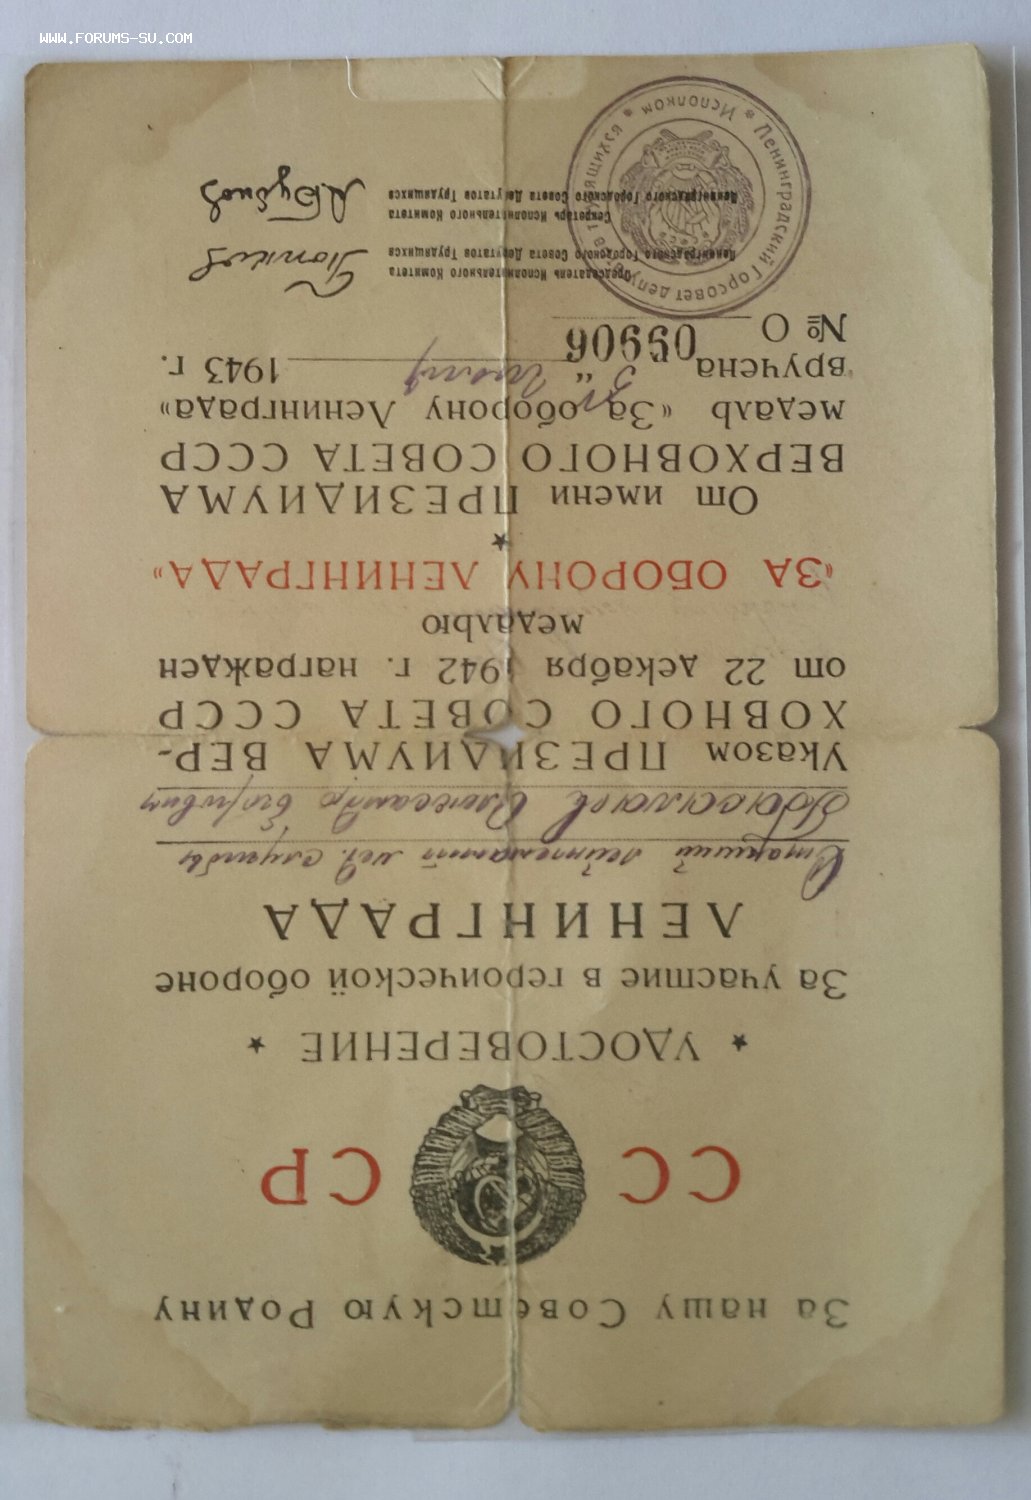 WWW.FORUMS-SU.COM
За нашу Советскую Родину
СС СР
★ УДОСТОВЕРЕНИЕ ★
За участие в героической обороне
ЛЕНИНГРАДА
Старший лейтенант мед. службы
Александр
Указом ПРЕЗИДИУМА ВЕР-
ХОВНОГО СОВЕТА СССР
от 22 декабря 1942 г. награжден
медалью
«ЗА ОБОРОНУ ЛЕНИНГРАДА»
★
От имени ПРЕЗИДИУМА
ВЕРХОВНОГО СОВЕТА СССР
медаль «За оборону Ленинграда»
вручена 1943 г.
№ О 05906
Председатель Исполнительного Комитета
Ленинградского Городского Совета Депутатов Трудящихся
Попков
Секретарь Исполнительного Комитета
Ленинградского Городского Совета Депутатов Трудящихся
А Бубнов
Ленинградский Горсовет депутатов трудящихся * Исполком *